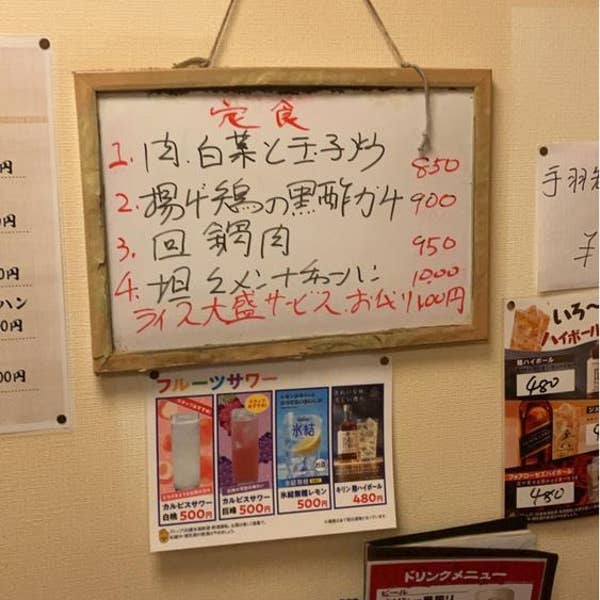 定食
1. 肉.白菜と玉子炒 850
2. 揚げ鶏の黒酢ガケ 900
3. 回鍋肉 950
4. 坦々メン+チャーハン 1000
ライス大盛サービス.お代り100円
フルーツサワー
カルピスサワー
白桃 500円
カルピスサワー
巨峰 500円
氷結
氷結無糖レモン
500円
キリン 陸ハイボール
480円
円
円
0円
ハン
0円
00円
手羽
¥
いろ〜
ハイボール
陸ハイボール
480
フォアローゼズハイボール
480
ドリンクメニュー
ビール